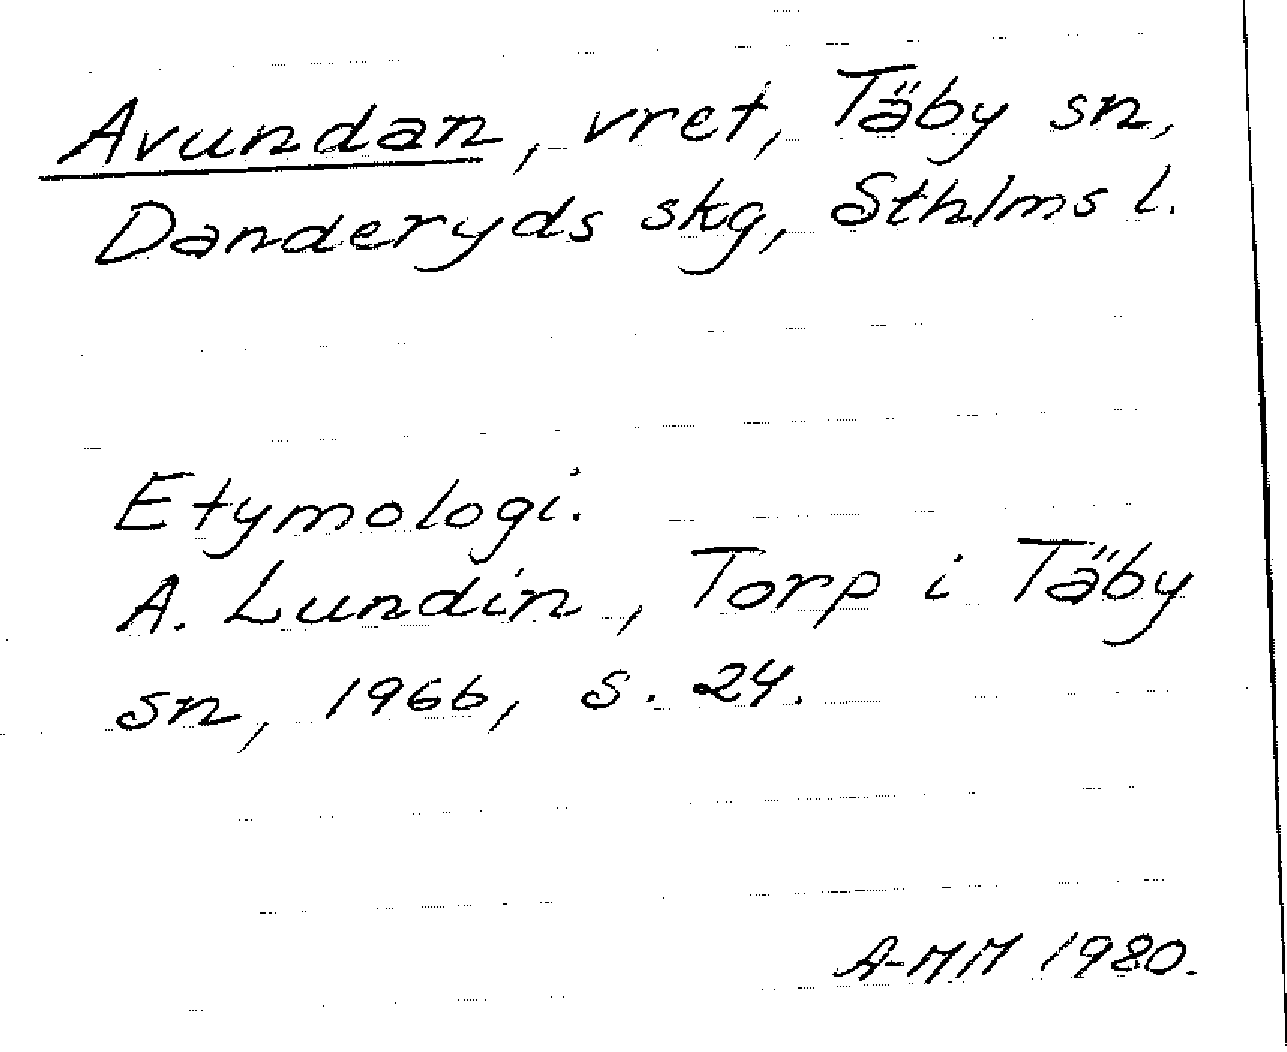 Avundan, vret, Täby sn,
Danderyds skg, Sthlms l.
Etymologi.
A. Lundin, Torp i Täby
sn, 1966, s. 24.
A-MM 1980.